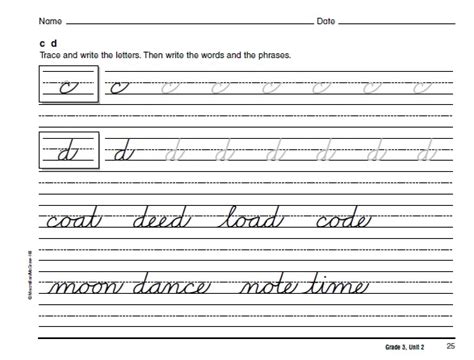 Name Date
c d
Trace and write the letters. Then write the words and the phrases.
c c c c c c c c c
d d d d d d d d
coat deed load code
moon dance note time
© Macmillan/McGraw-Hill
Grade 3, Unit 2 25